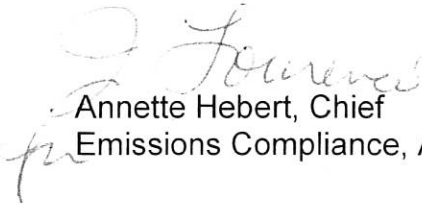 for
Annette Hebert, Chief
Emissions Compliance, A